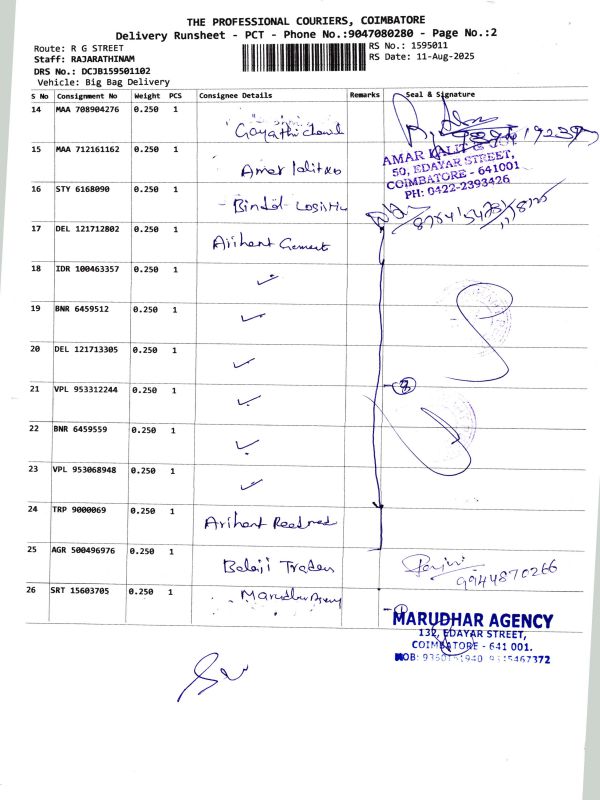 THE PROFESSIONAL COURIERS, COIMBATORE
Delivery Runsheet - PCT - Phone No.:9047080280 - Page No.:2
Route: R G STREET
RS No.: 1595011
Staff: RAJARATHINAM
RS Date: 11-Aug-2025
DRS No.: DCJB159501102
Vehicle: Big Bag Delivery
S No Consignment No Weight PCS Consignee Details Remarks Seal & Signature
14 MAA 708904276 0.250 1
15 MAA 712161162 0.250 1 Amar
AMAR LALIT
50, EDAYAR STREET,
COIMBATORE - 641001
PH: 0422-2393426
16 STY 6168090 0.250 1 - Bindal Logistic
17 DEL 121712802 0.250 1 Arihant
18 IDR 100463357 0.250 1 ✓
19 BNR 6459512 0.250 1 ✓
20 DEL 121713305 0.250 1 ✓
21 VPL 953312244 0.250 1 ✓ 8
22 BNR 6459559 0.250 1 ✓
23 VPL 953068948 0.250 1 ✓
24 TRP 9000069 0.250 1 Arihant
25 AGR 500496976 0.250 1 Balaji Traders
9944870266
26 SRT 15603705 0.250 1 Marudhar Agency
MARUDHAR AGENCY
132, EDAYAR STREET,
COIMBATORE - 641 001.